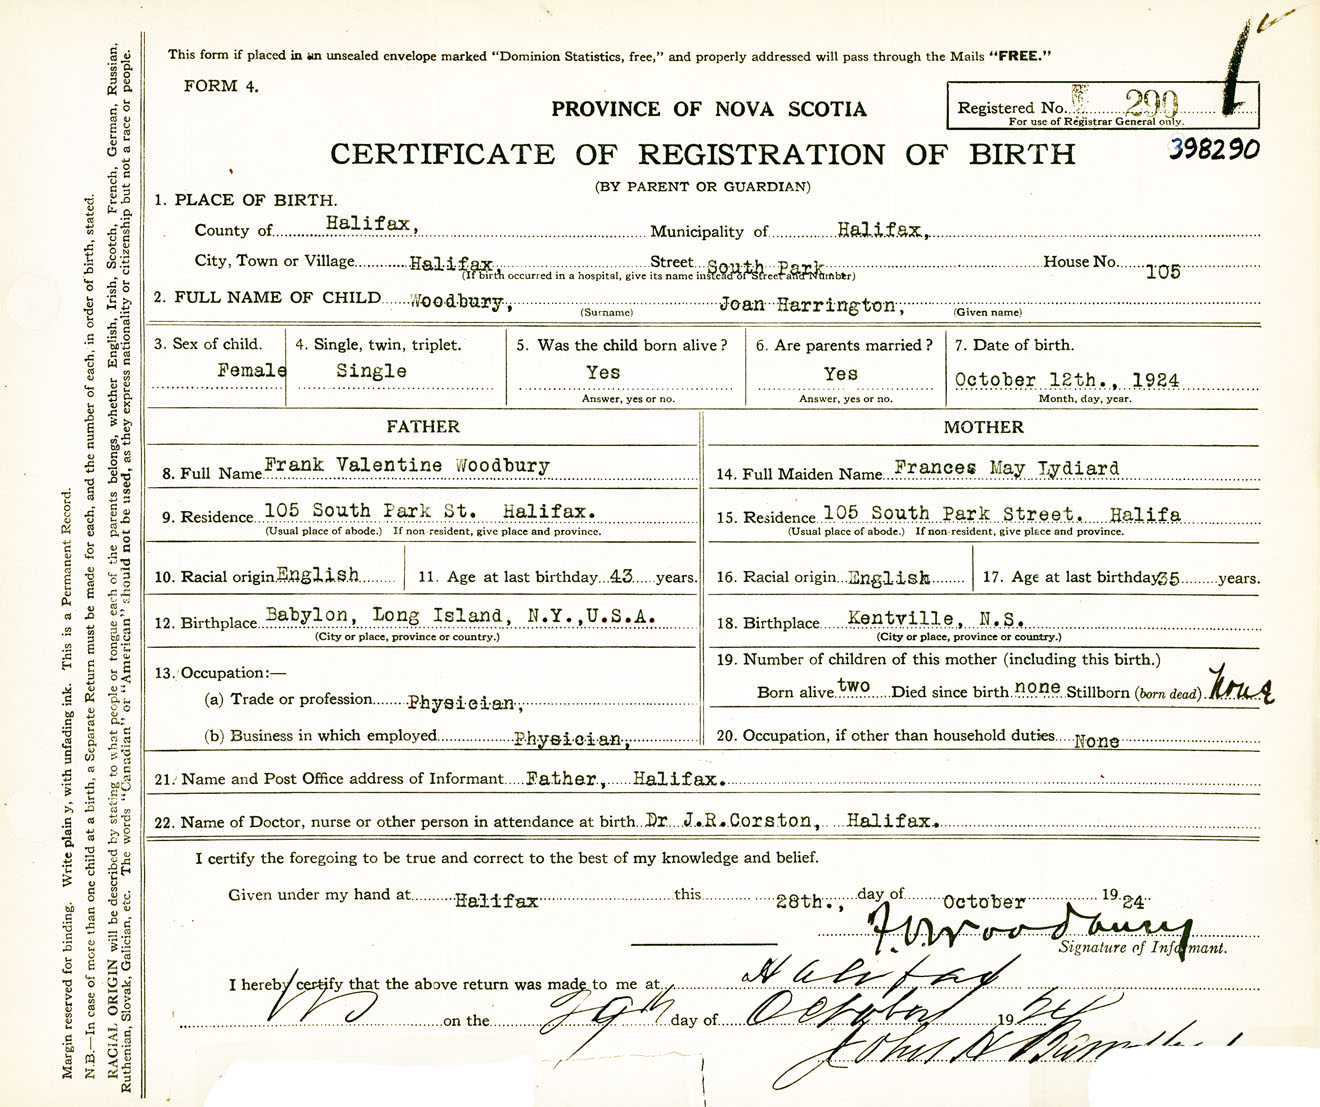 This form if placed in an unsealed envelope marked "Dominion Statistics, free," and properly addressed will pass through the Mails "FREE."
FORM 4.
PROVINCE OF NOVA SCOTIA
Registered No. 290
For use of Registrar General only.
398290
CERTIFICATE OF REGISTRATION OF BIRTH
(BY PARENT OR GUARDIAN)
1. PLACE OF BIRTH.
County of Halifax, Municipality of Halifax,
City, Town or Village Halifax, Street South Park House No. 105
(If birth occurred in a hospital, give its name instead of Street and Number)
2. FULL NAME OF CHILD Woodbury, Joan Harrington,
(Surname) (Given name)
3. Sex of child. 4. Single, twin, triplet. 5. Was the child born alive? 6. Are parents married? 7. Date of birth.
Female Single Yes Yes October 12th., 1924
Answer, yes or no. Answer, yes or no. Month, day, year.
FATHER MOTHER
8. Full Name Frank Valentine Woodbury 14. Full Maiden Name Frances May Lydiard
9. Residence 105 South Park St. Halifax. 15. Residence 105 South Park Street. Halifa
(Usual place of abode.) If non-resident, give place and province. (Usual place of abode.) If non-resident, give place and province.
10. Racial origin English 11. Age at last birthday 43 years. 16. Racial origin English 17. Age at last birthday 35 years.
12. Birthplace Babylon, Long Island, N.Y.,U.S.A. 18. Birthplace Kentville, N.S.
(City or place, province or country.) (City or place, province or country.)
13. Occupation:—
19. Number of children of this mother (including this birth.)
(a) Trade or profession Physician, Born alive two Died since birth none Stillborn (born dead) None
(b) Business in which employed Physician, 20. Occupation, if other than household duties None
21. Name and Post Office address of Informant Father, Halifax.
22. Name of Doctor, nurse or other person in attendance at birth Dr J.R.Corston, Halifax.
I certify the foregoing to be true and correct to the best of my knowledge and belief.
Given under my hand at Halifax this 28th., day of October 1924
F.V. Woodbury
Signature of Informant.
I hereby certify that the above return was made to me at Halifax
NS on the 29th day of October 1924
John H
Margin reserved for binding. Write plainly, with unfading ink. This is a Permanent Record.
N.B.—In case of more than one child at a birth, a Separate Return must be made for each, and the number of each, in order of birth, stated.
RACIAL ORIGIN will be described by stating to what people or tongue each of the parents belongs, whether English, Irish, Scotch, French, German, Russian,
Ruthenian, Slovak, Galician, etc. The words "Canadian" or "American" should not be used, as they express nationality or citizenship but not a race or people.